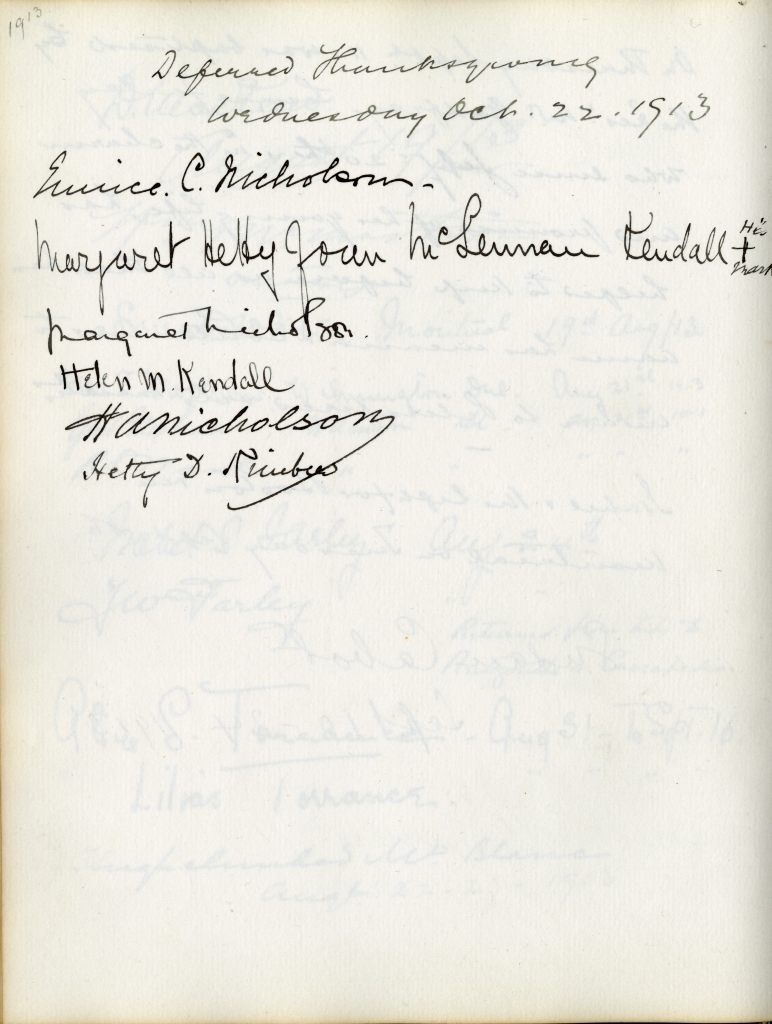 1913
Deferred Thanksgiving
Wednesday Oct. 22. 1913
Eunice. C. Nicholson.
Margaret Hetty Joan McLennan Kendall Her + mark
Margaret Nicholson.
Helen M. Kendall
H A Nicholson
Hetty D.